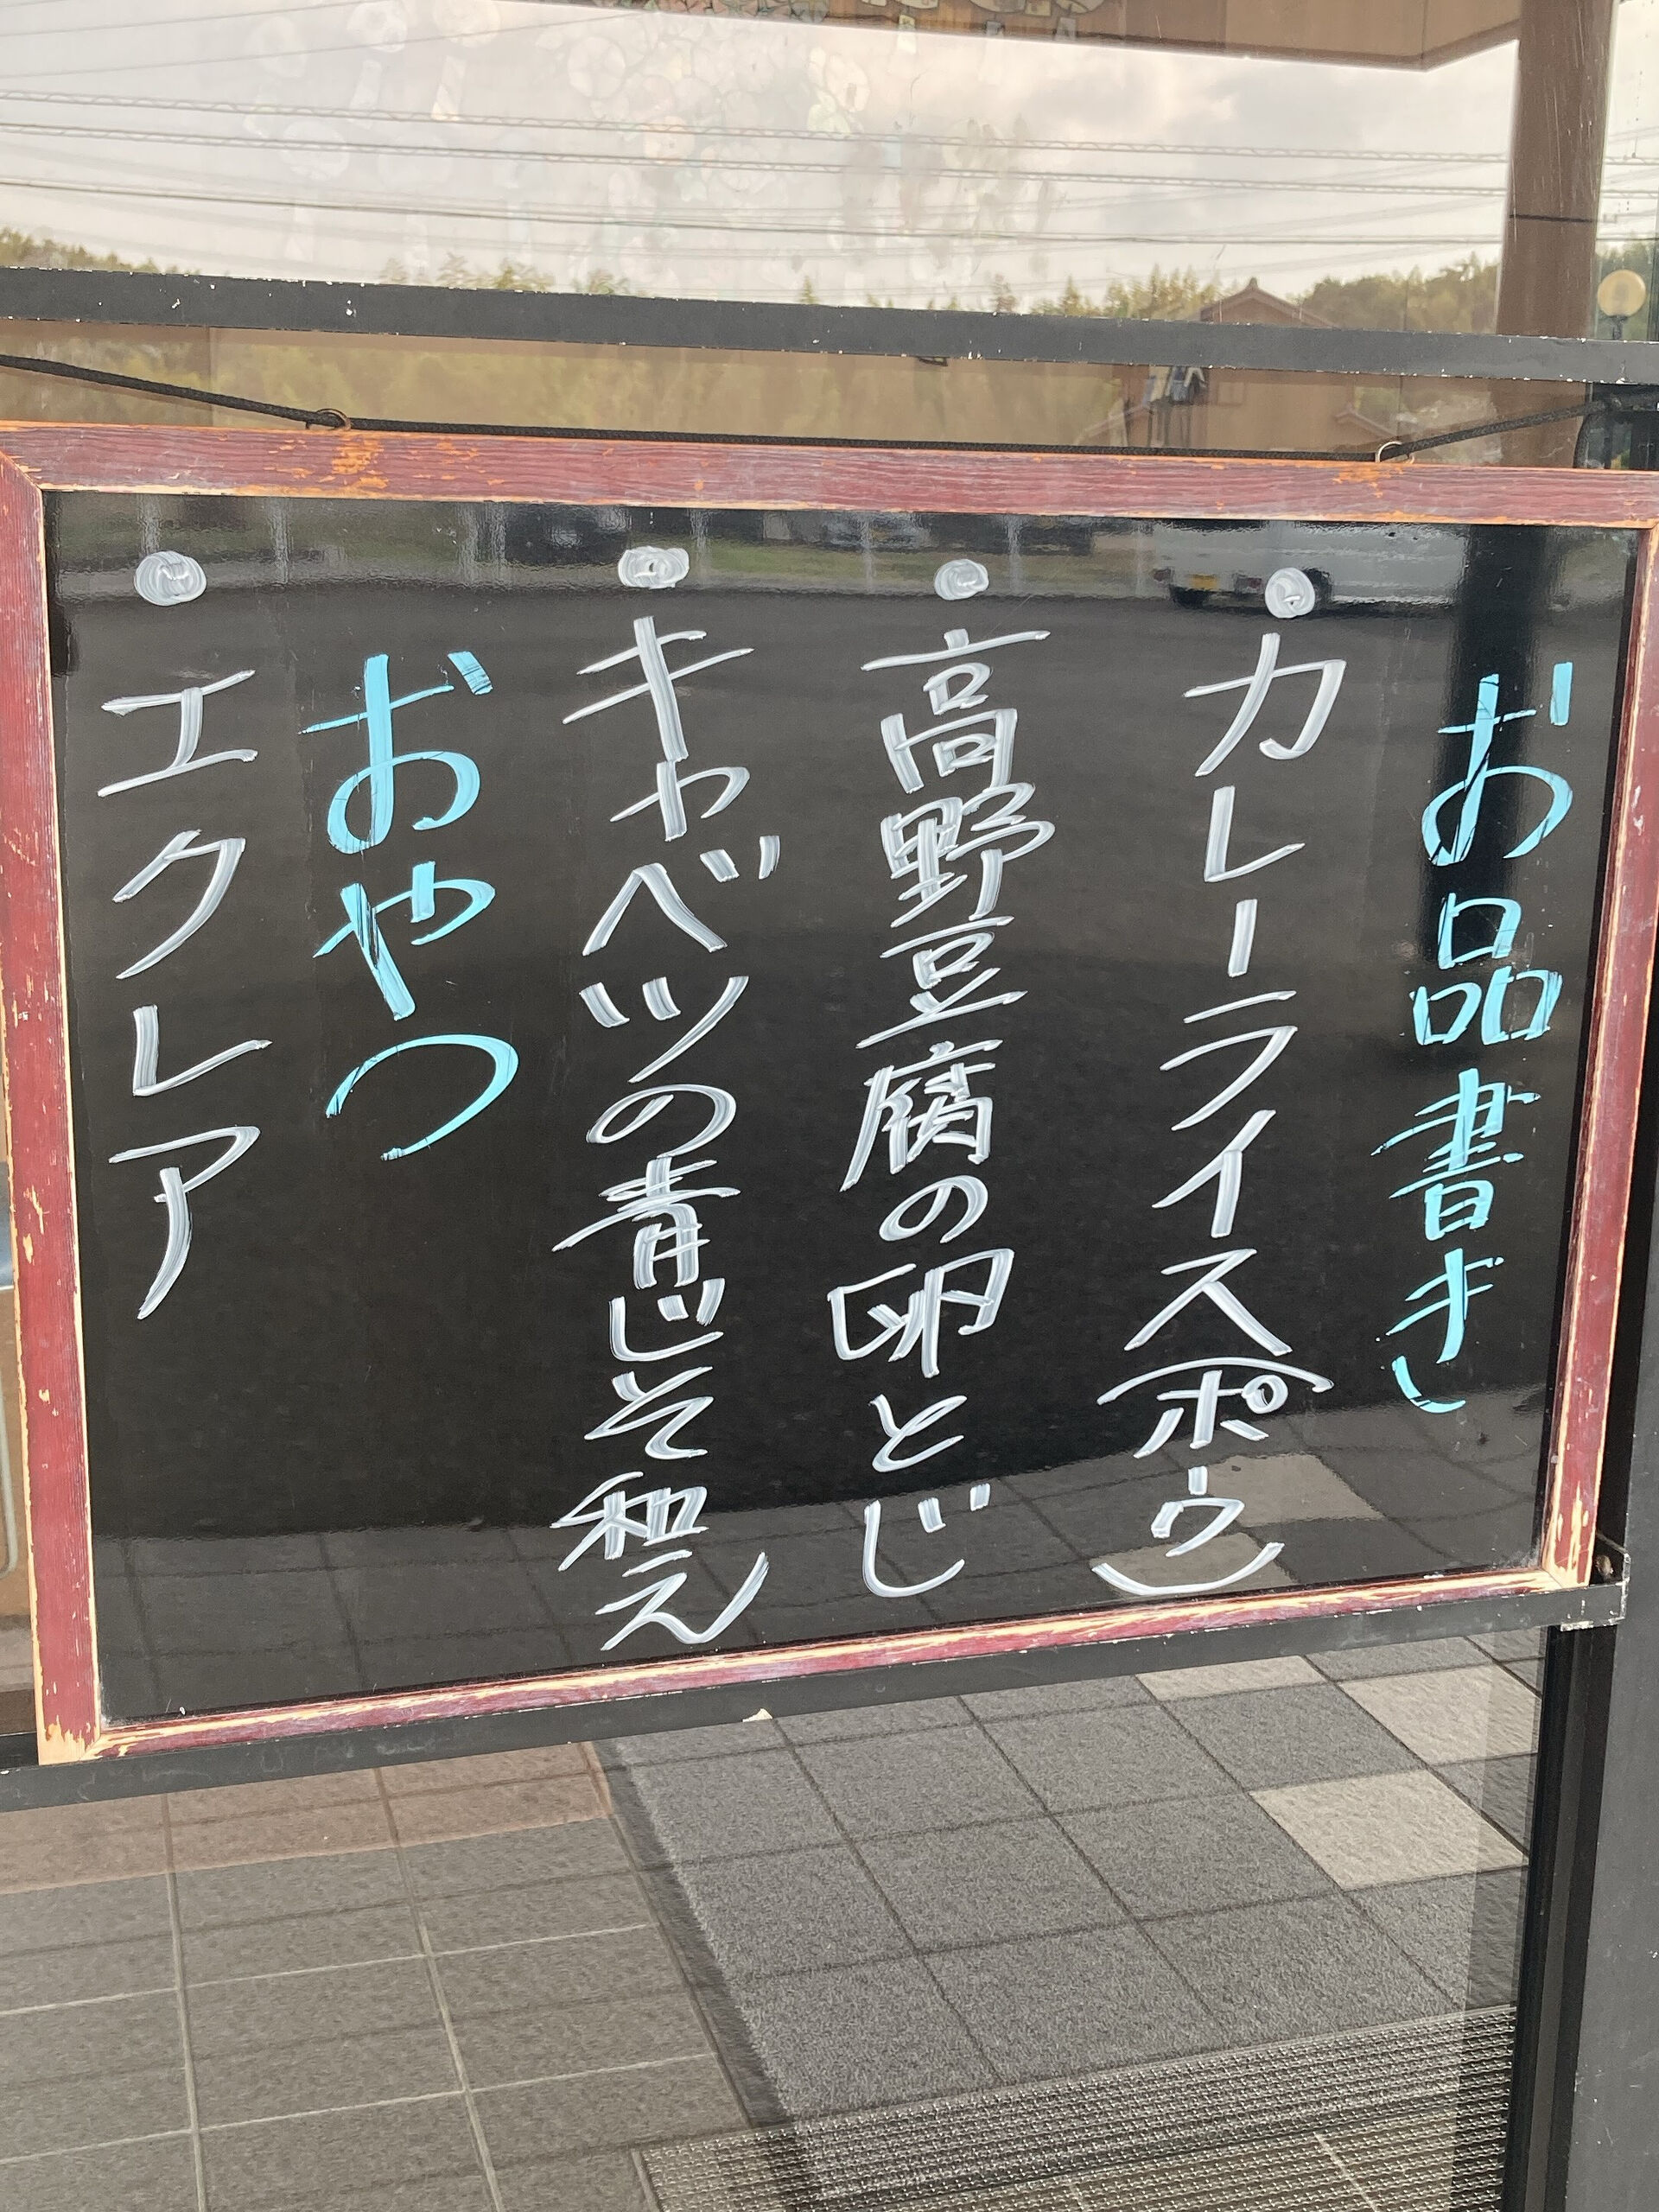 お品書き
・カレーライス(ポーク)
・高野豆腐の卵とじ
・キャベツの青じそ和え
おやつ
・エクレア